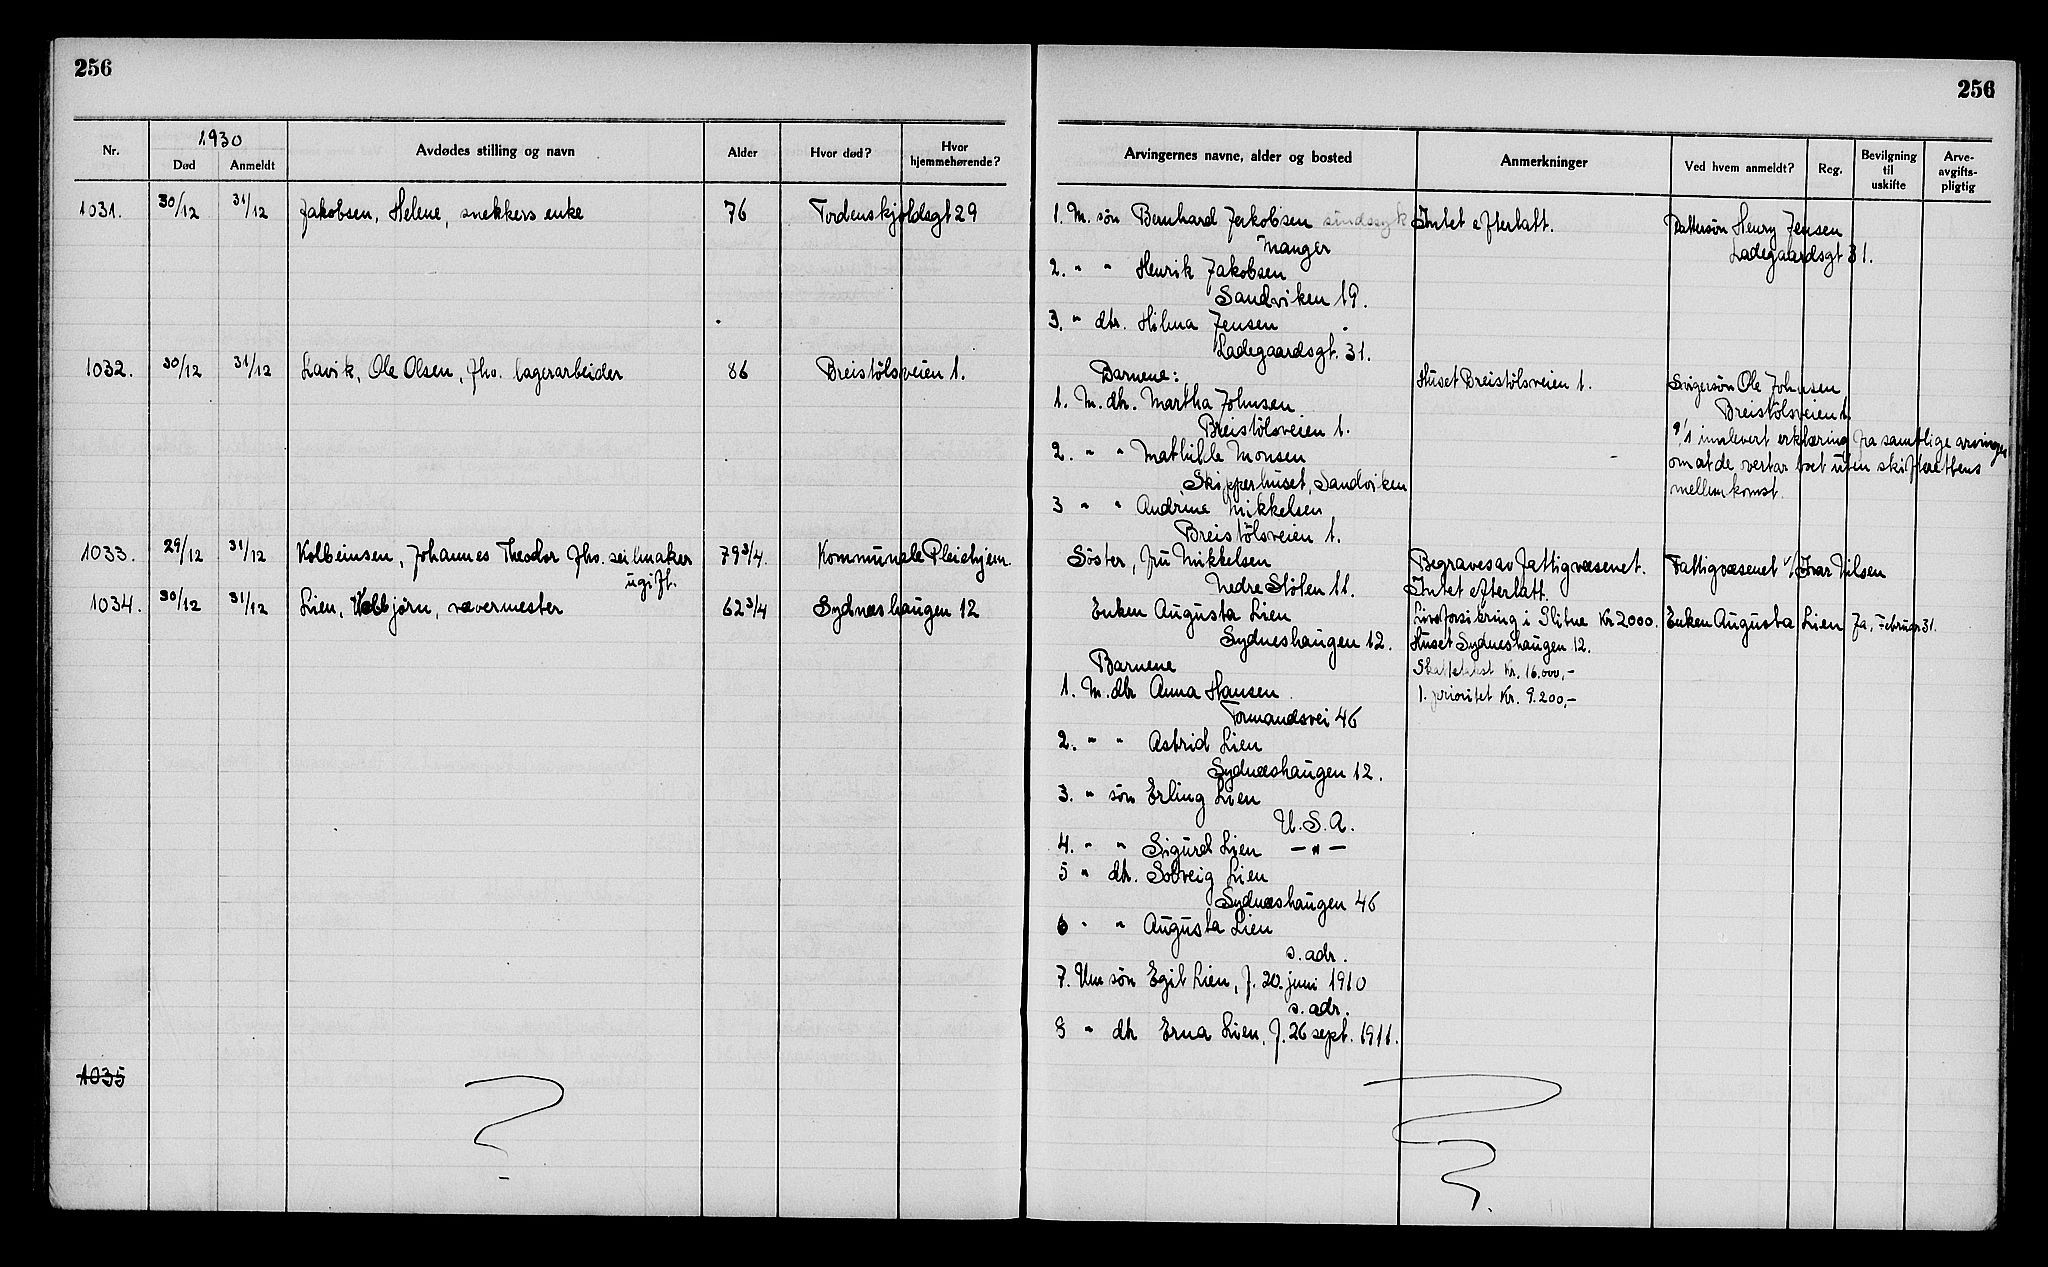 256
256
Nr.
1930
Død
Anmeldt
Avdødes stilling og navn
Alder
Hvor død?
Hvor hjemmehørende?
Arvingernes navne, alder og bosted
Anmerkninger
Ved hvem anmeldt?
Reg.
Bevilgning til uskifte
Arve-avgifts-pligtig
1031. 30/12 31/12 Jakobsen, Helene, snekkers enke 76 Tordenskjoldsgt 29
1. M. søn Bernhard Jakobsen sindssyk
Manger
2. " " Henrik Jakobsen
Sandviken 19.
3. " dtr. Hilma Jensen
Ladegaardsgt. 31.
Intet efterlatt.
Dattersøn Henry Jensen
Ladegaardsgt 31.
1032. 30/12 31/12 Lavik, Ole Olsen, fhv. lagerarbeider 86 Breistølsveien 1.
Barnene:
1. M. dtr. Martha Johnsen
Breistølsveien 1.
2. " " Mathilde Monsen
Skipperhuset, Sandviken
3 " " Andrine Mikkelsen
Breistølsveien 1.
Huset Breistølsveien 1.
Svigersøn Ole Johnsen
Breistølsveien 1.
9/1 innlevert erklæring fra samtlige arvinger
om at de overtar boet uten skifterettens
mellemkomst.
1033. 29/12 31/12 Kolbeinsen, Johannes Theodor fhv. seilmaker 79 3/4. Kommunale Pleiehjem
ugift.
Søster, fru Mikkelsen
Nedre Stølen 11.
Begraves av fattigvæsenet.
Intet efterlatt.
Fattigvæsenet v/ Ivar Nilsen
1034. 30/12 31/12 Lien, Kolbjørn, vævermester 62 3/4 Sydneshaugen 12
Enken Augusta Lien
Sydneshaugen 12.
Barnene
1. M. dtr Anna Hansen
Formandsvei 46
2. " " Astrid Lien
Sydneshaugen 12.
3. " søn Erling Lien
U.S.A.
4. " " Sigurd Lien — " —
5 " dtr. Solveig Lien
Sydneshaugen 46
6 " " Augusta Lien
s. adr.
7. Um søn Egil Lien, f. 20. juni 1910
s. adr.
8 " dtr Erna Lien, f. 26 sept. 1911.
Livsforsikring i Glitne Kr 2000.
Huset Sydneshaugen 12.
Skattetakst Kr. 16.000,-
1. prioritet Kr. 9.200,-
Enken Augusta Lien
Ja, Februar 31.
1035